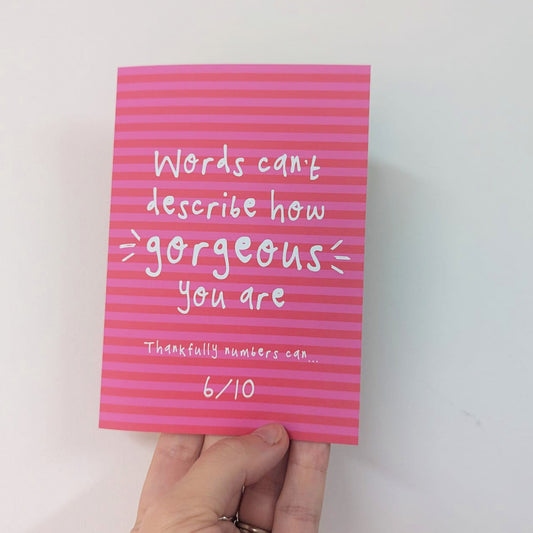 Words can't
describe how
gorgeous
you are
Thankfully numbers can...
6/10